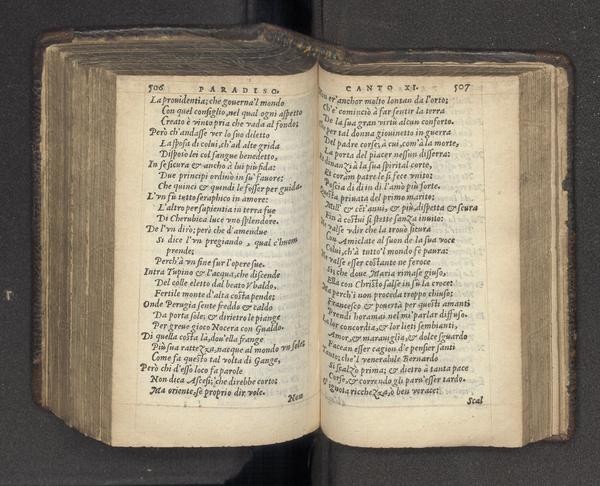 506 PARADISO.
La prouidentia; che gouerna'l mondo
Con quel consiglio, nel qual ogni aspetto
Creato è uinto pria che uada al fondo;
Però ch'andasse ver lo suo diletto
La sposa di colui, ch'ad alte grida
Disposò lei col sangue benedetto,
In se sicura & ancho à lui piu fida:
Due principi ordinò in su' fauore;
Che quinci & quindi le fosser per guida.
L'vn fu tutto seraphico in amore:
L'altro per sapientia in terra fue
Di Cherubica luce vno splendore.
De l'vn dirò; però che d'amendue
Si dice l'vn pregiando, qual c'huom
prende;
Perch'à vn fine fur l'opere sue.
Intra Tupino & l'acqua, che discende
Del colle eletto dal beato Vbaldo,
Fertile monte d'alta costa pende;
Onde Perugia sente freddo & caldo
Da porta sole; & dirietro le piange
Per greue giogo Nocera con Gualdo.
Di quella costa là, dou'ella frange
Piu sua rattezza, nacque al mondo vn sole;
Come fa questo tal volta di Gange,
Però chi d'esso loco fa parole
Non dica Ascesi; che direbbe corto;
Ma oriente, se proprio dir vole.
Non
CANTO XI. 507
Non er'anchor molto lontan da l'orto;
Ch'e' cominciò à far sentir la terra
De la sua gran virtù alcun conforto.
Che per tal donna giouinetto in guerra
Del padre corse; à cui, com'à la morte,
La porta del piacer nessun disserra:
Et dinanzi à la sua spirital corte,
Et coram patre le si fece vnito:
Poscia di dì in dì l'amò piu forte.
Questa priuata del primo marito;
Mill' & cēt'anni, & piu, dispetta & scura
Fin à costui si stette sanza inuito:
Ne valse vdir che la trouò sicura
Con Amiclate al suon de la sua voce
Colui, ch'à tutto'l mondo fe paura:
Ne valse esser costante ne feroce
Sì; che doue Maria rimase giuso,
Ella con Christo salse in su la croce:
Ma perch'i non proceda troppo chiuso;
Francesco & pouertà per questi amanti
Prendi horamai nel mi' parlar diffuso.
La lor concordia, & lor lieti sembianti,
Amor, & marauiglia, & dolce sguardo
Facean esser cagion d'e pensier santi
Tanto; che'l venerabile Bernardo
Si scalzò prima; & dietro à tanta pace
Corse, & correndo gli paru'esser tardo.
O ignota ricchezza, ò ben verace:
Scal